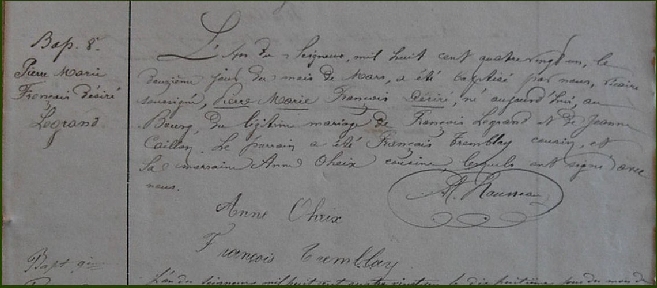 Bap. 8e
Pierre Marie
Français désiré
Legrand
L'An du Seigneur, mil huit cent quatre vingt un, le
deuxième jour du mois de Mars, a été baptisé par nous, vicaire
soussigné, Pierre Marie Français Désiré, né aujourd'hui, au
Bourg, du légitime mariage de François Legrand & de Jeanne
Caillon. Le parrain a été Français Tremblay cousin, et
la marraine Anne Oheix cousine, lesquels ont signé avec
nous.
Anne Oheix
François Tremblay
Bapt
L'an du Seigneur mil huit cent quatre vingt un le dix huitième jour du mois de